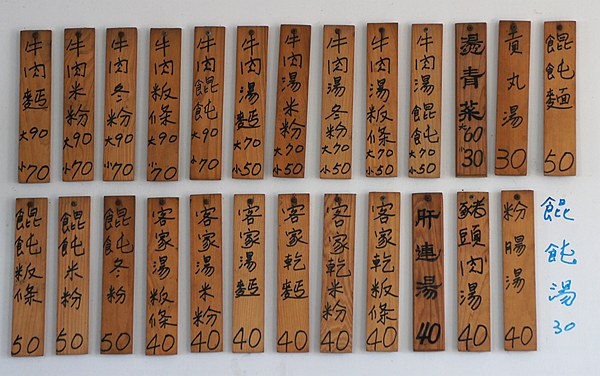 牛肉麵
大90
小70
牛肉米粉
大90
小70
牛肉冬粉
大90
小70
牛肉粄條
大90
小70
牛肉餛飩
大90
小70
牛肉湯麵
大70
小50
牛肉湯米粉
大70
小50
牛肉湯冬粉
大70
小50
牛肉湯粄條
大70
小50
牛肉湯餛飩
大70
小50
燙青菜
大60
小30
貢丸湯
30
餛飩麵
50
餛飩粄條
50
餛飩米粉
50
餛飩冬粉
50
客家湯粄條
40
客家湯米粉
40
客家湯麵
40
客家乾麵
40
客家乾米粉
40
客家乾粄條
40
肝連湯
40
豬頭肉湯
40
粉腸湯
40
餛飩湯
30